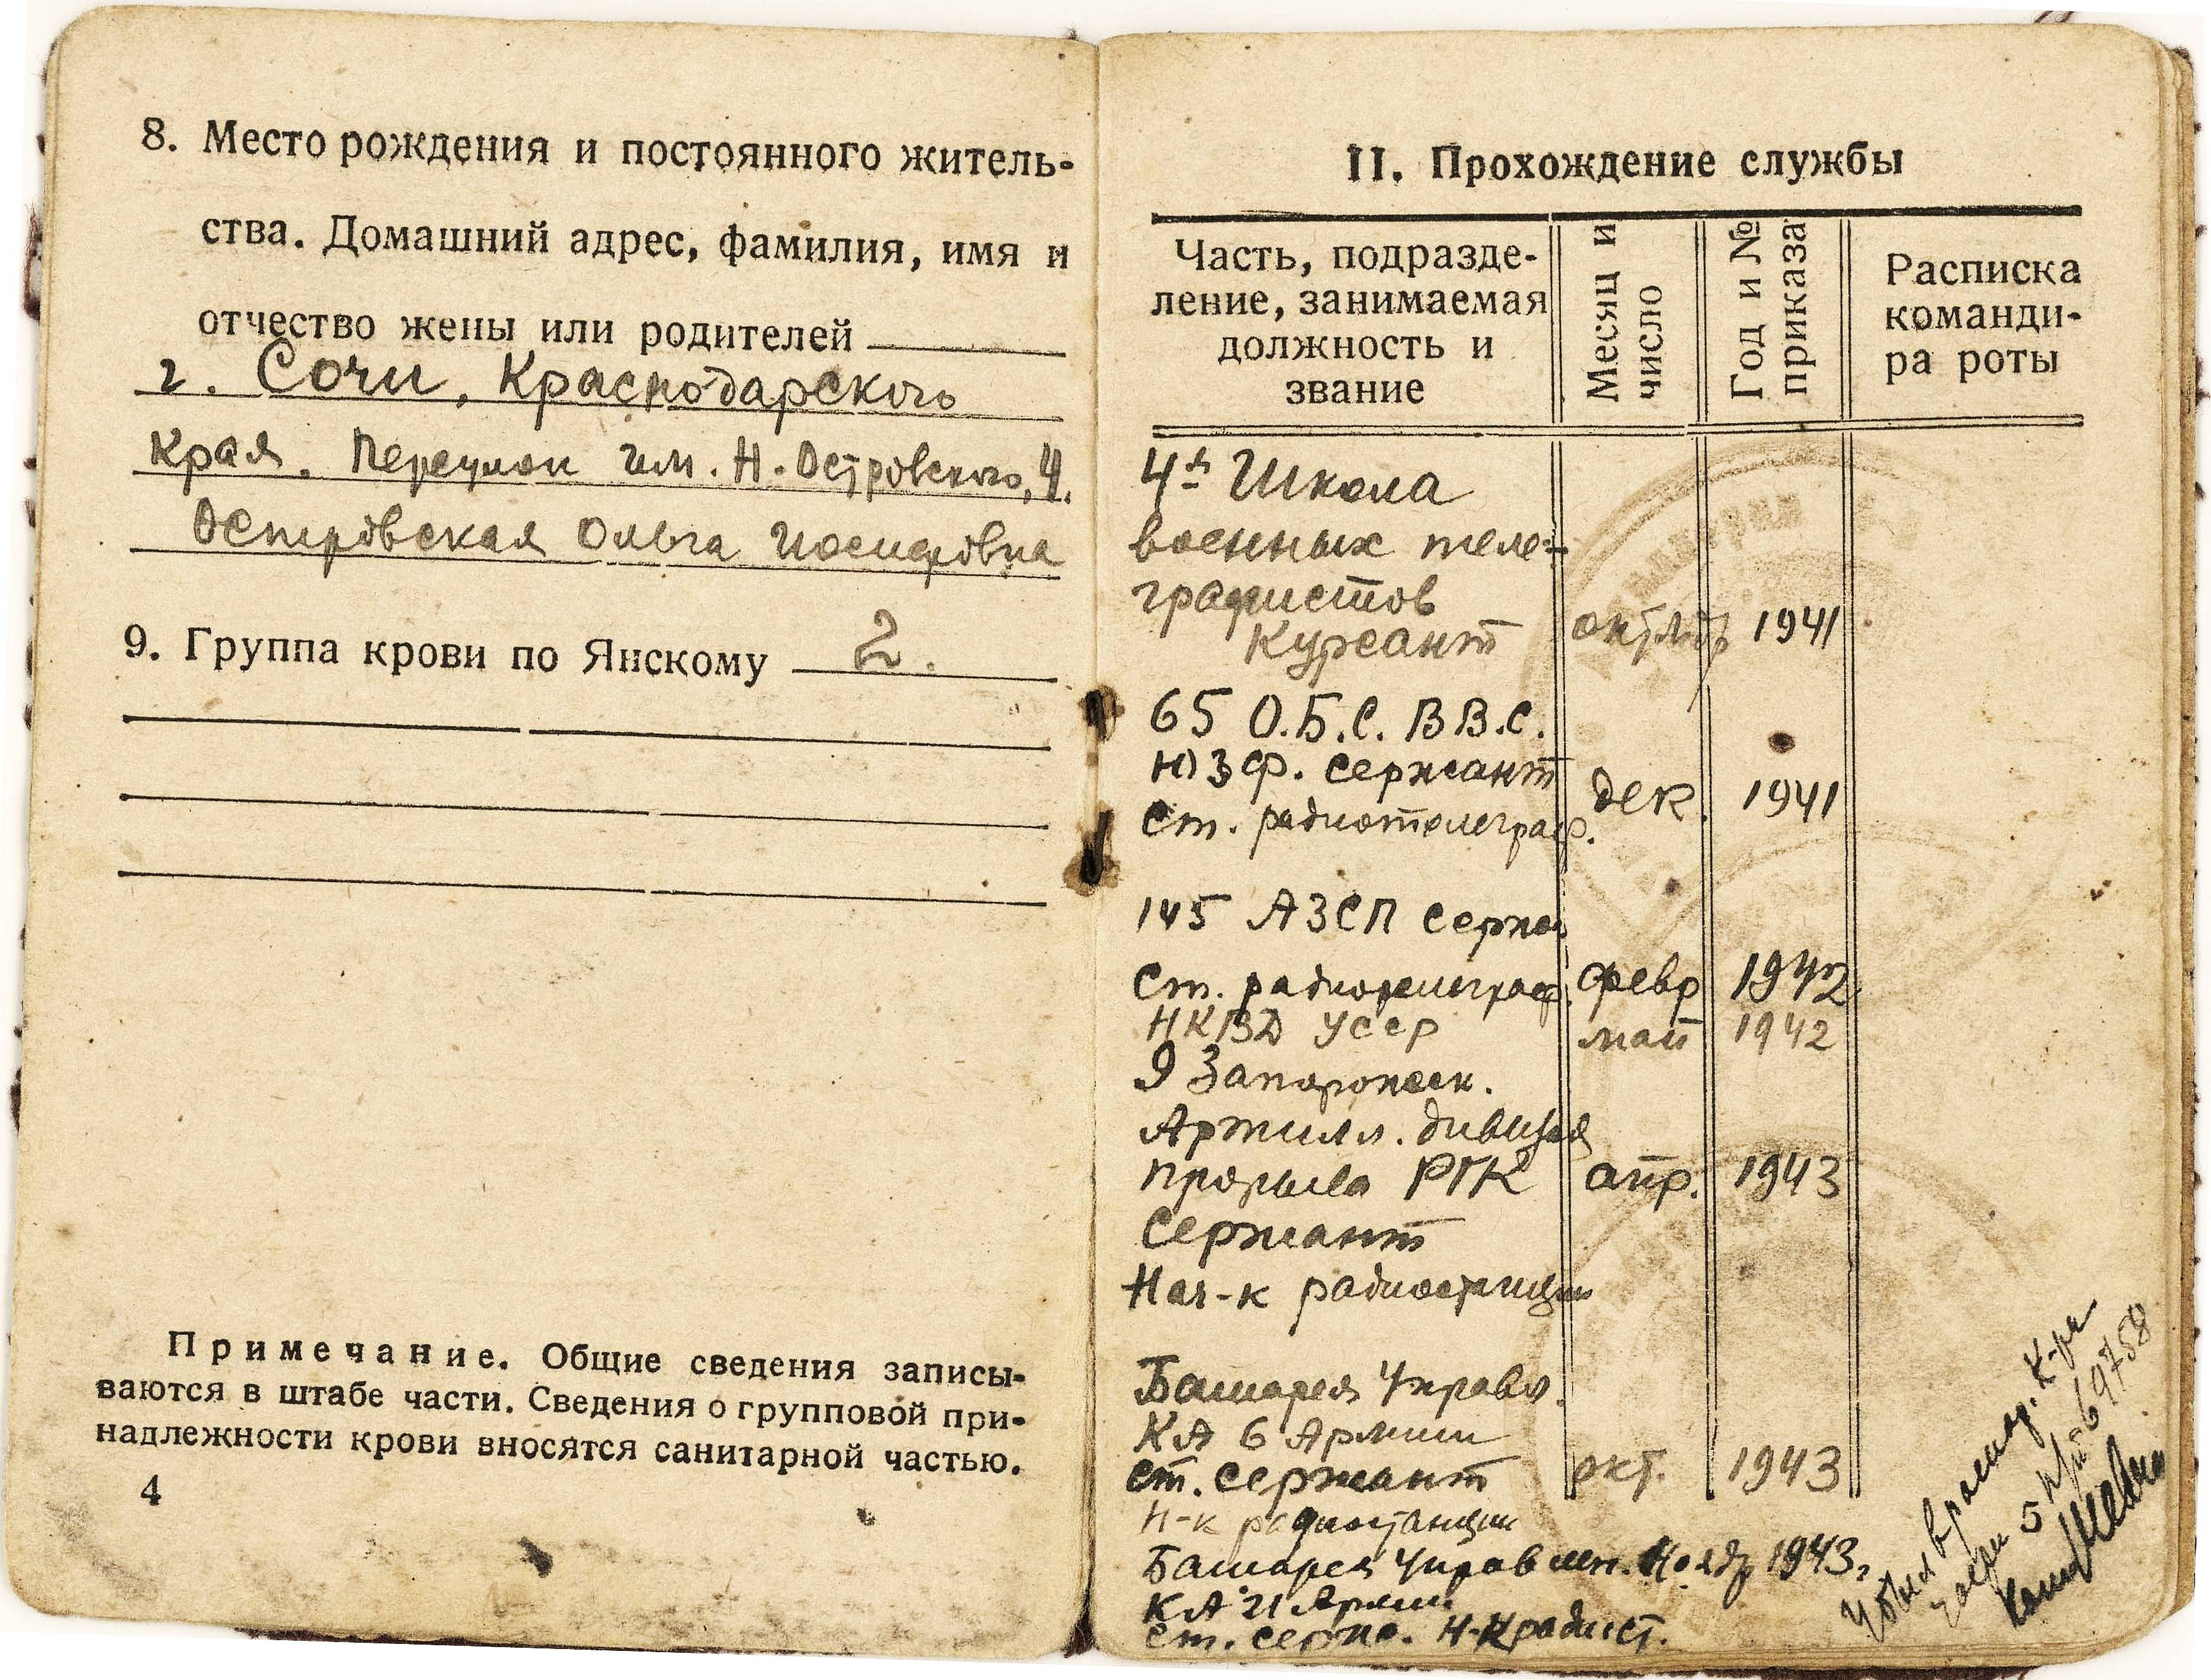 8. Место рождения и постоянного житель-
ства. Домашний адрес, фамилия, имя и
отчество жены или родителей
г. Сочи, Краснодарского
края. Переулок им. Н. Островского, 4.
Островская Ольга Иосифовна
9. Группа крови по Янскому 2.
Примечание. Общие сведения записы-
ваются в штабе части. Сведения о групповой при-
надлежности крови вносятся санитарной частью.
4
II. Прохождение службы
Часть, подразде-
ление, занимаемая
должность и
звание
Месяц и
число
Год и №
приказа
Расписка
команди-
ра роты
4я Школа
военных теле-
графистов
Курсант октябрь 1941
65 О.Б.С. ВВ.С.
ЮЗФ. сержант
ст. радиотелеграф. дек. 1941
145 АЗСП серж
ст. радиотелеграф. февр 1942
НКВД УССР май 1942
9 Запорожск.
Артилл. дивизия
прорыва РГК апр. 1943
Сержант
Нач-к радиостанции
Батарея Управл.
КА 6 Армии
ст. сержант окт. 1943
Н-к радиостанции
Батарея Управлен. Ноябр 1943г
КА 21 Армии
ст. серж. Н-к радист.
Убыл в
5 п/п 69758